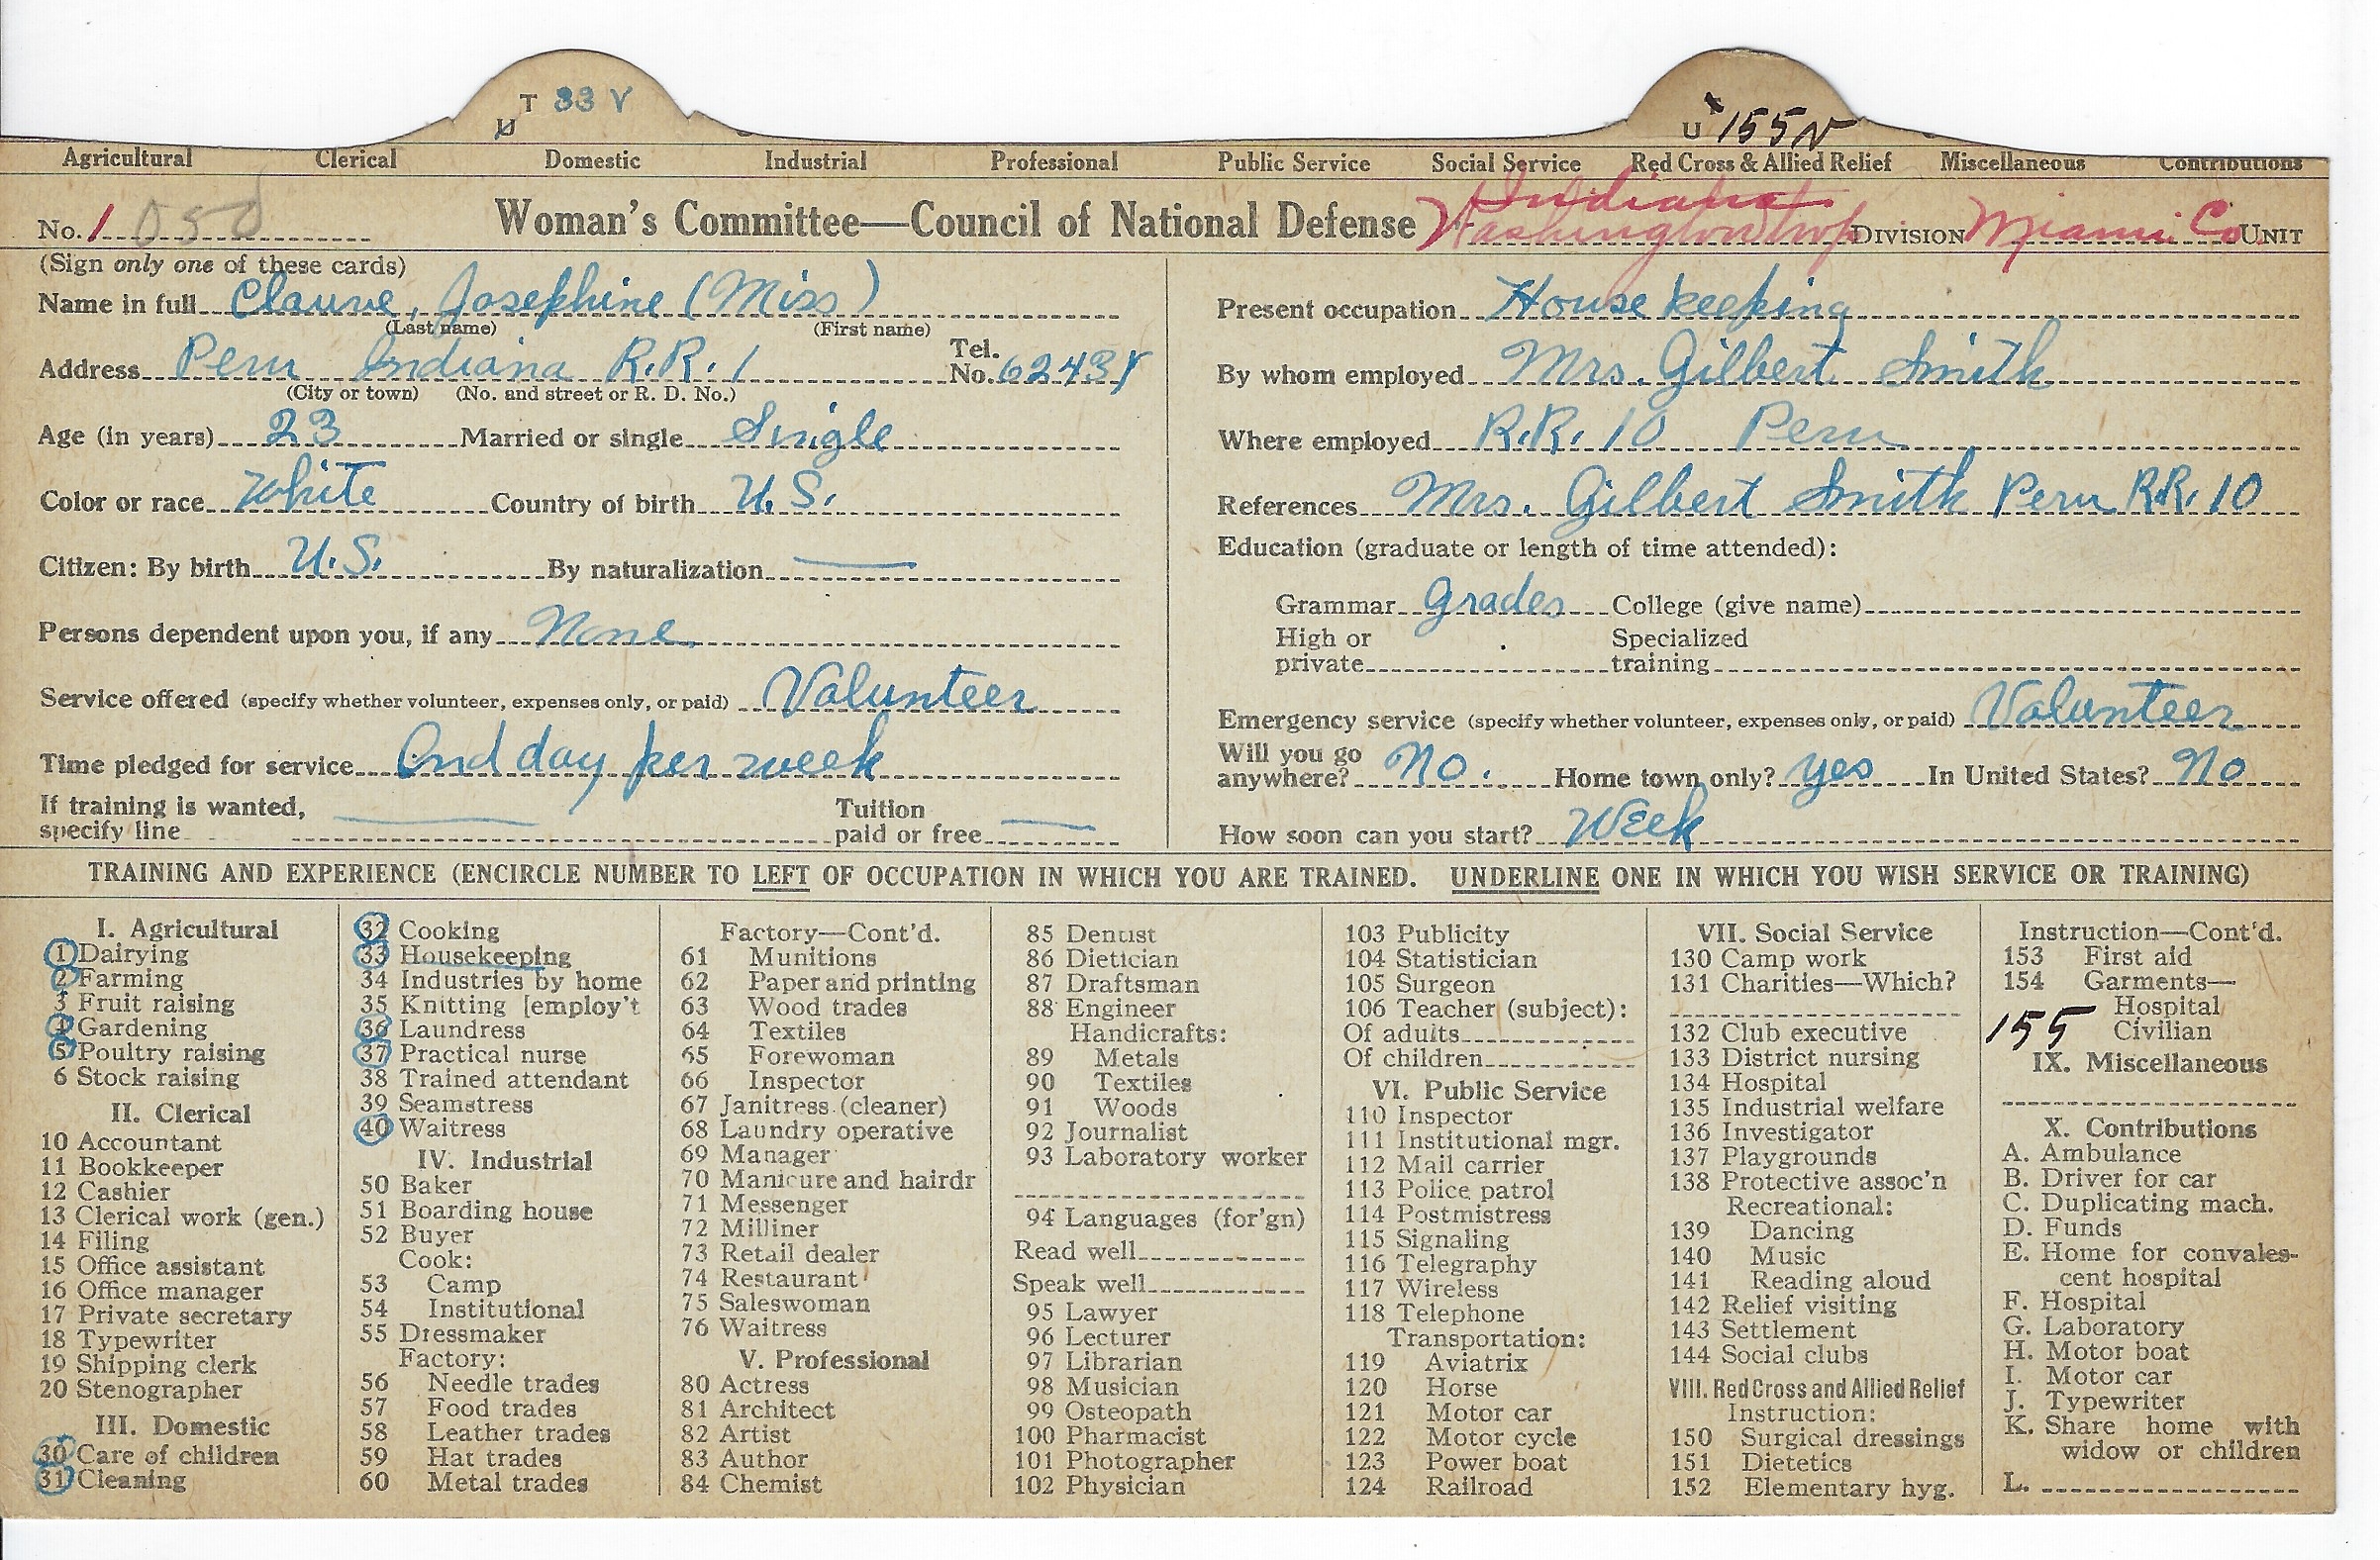 T 33 V
U
U 155 V
Agricultural Clerical Domestic Industrial Professional Public Service Social Service Red Cross & Allied Relief Miscellaneous Contributions
Indiana
No. 1 050 Woman's Committee—Council of National Defense Washington twp DIVISION Miami Co. UNIT
(Sign only one of these cards)
Name in full Clauve, Josephine (Miss)
(Last name) (First name)
Address Peru Indiana R.R. 1 Tel. No. 6243Y
(City or town) (No. and street or R. D. No.)
Age (in years) 23 Married or single Single
Color or race White Country of birth U.S.
Citizen: By birth U.S. By naturalization
Persons dependent upon you, if any None
Service offered (specify whether volunteer, expenses only, or paid) Volunteer
Time pledged for service One day per week
If training is wanted, specify line Tuition paid or free
Present occupation House keeping
By whom employed Mrs. Gilbert Smith
Where employed R.R. 10 Peru
References Mrs. Gilbert Smith Peru R.R. 10
Education (graduate or length of time attended):
Grammar grades College (give name)
High or private Specialized training
Emergency service (specify whether volunteer, expenses only, or paid) Volunteer
Will you go anywhere? No. Home town only? yes In United States? No
How soon can you start? Week
TRAINING AND EXPERIENCE (ENCIRCLE NUMBER TO LEFT OF OCCUPATION IN WHICH YOU ARE TRAINED. UNDERLINE ONE IN WHICH YOU WISH SERVICE OR TRAINING)
I. Agricultural
1 Dairying
2 Farming
3 Fruit raising
4 Gardening
5 Poultry raising
6 Stock raising
II. Clerical
10 Accountant
11 Bookkeeper
12 Cashier
13 Clerical work (gen.)
14 Filing
15 Office assistant
16 Office manager
17 Private secretary
18 Typewriter
19 Shipping clerk
20 Stenographer
III. Domestic
30 Care of children
31 Cleaning
32 Cooking
33 Housekeeping
34 Industries by home
35 Knitting [employ't
36 Laundress
37 Practical nurse
38 Trained attendant
39 Seamstress
40 Waitress
IV. Industrial
50 Baker
51 Boarding house
52 Buyer
Cook:
53 Camp
54 Institutional
55 Dressmaker
Factory:
56 Needle trades
57 Food trades
58 Leather trades
59 Hat trades
60 Metal trades
Factory—Cont'd.
61 Munitions
62 Paper and printing
63 Wood trades
64 Textiles
65 Forewoman
66 Inspector
67 Janitress (cleaner)
68 Laundry operative
69 Manager
70 Manicure and hairdr
71 Messenger
72 Milliner
73 Retail dealer
74 Restaurant
75 Saleswoman
76 Waitress
V. Professional
80 Actress
81 Architect
82 Artist
83 Author
84 Chemist
85 Dentist
86 Dietician
87 Draftsman
88 Engineer
Handicrafts:
89 Metals
90 Textiles
91 Woods
92 Journalist
93 Laboratory worker
94 Languages (for'gn)
Read well
Speak well
95 Lawyer
96 Lecturer
97 Librarian
98 Musician
99 Osteopath
100 Pharmacist
101 Photographer
102 Physician
103 Publicity
104 Statistician
105 Surgeon
106 Teacher (subject):
Of adults
Of children
VI. Public Service
110 Inspector
111 Institutional mgr.
112 Mail carrier
113 Police patrol
114 Postmistress
115 Signaling
116 Telegraphy
117 Wireless
118 Telephone
Transportation:
119 Aviatrix
120 Horse
121 Motor car
122 Motor cycle
123 Power boat
124 Railroad
VII. Social Service
130 Camp work
131 Charities—Which?
132 Club executive
133 District nursing
134 Hospital
135 Industrial welfare
136 Investigator
137 Playgrounds
138 Protective assoc'n
Recreational:
139 Dancing
140 Music
141 Reading aloud
142 Relief visiting
143 Settlement
144 Social clubs
VIII. Red Cross and Allied Relief
Instruction:
150 Surgical dressings
151 Dietetics
152 Elementary hyg.
Instruction—Cont'd.
153 First aid
154 Garments—
Hospital
155 Civilian
IX. Miscellaneous
X. Contributions
A. Ambulance
B. Driver for car
C. Duplicating mach.
D. Funds
E. Home for convales-
cent hospital
F. Hospital
G. Laboratory
H. Motor boat
I. Motor car
J. Typewriter
K. Share home with
widow or children
L.